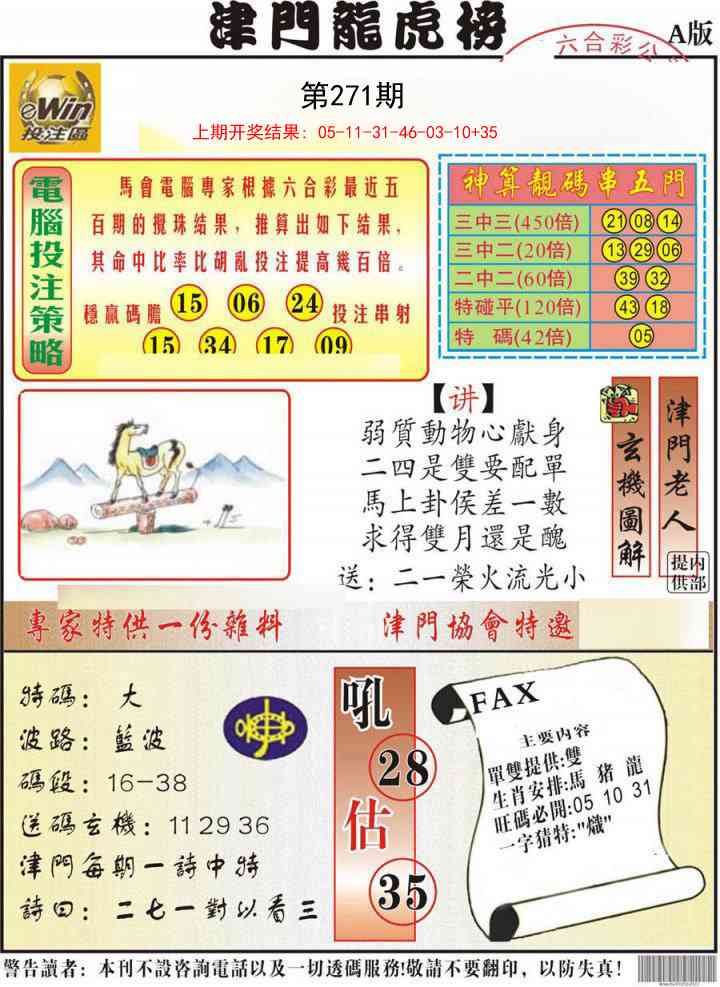 津門龍虎榜
六合彩公
A版
eWin
投注區
第271期
上期开奖结果：05-11-31-46-03-10+35
電腦投注策略
馬會電腦專家根據六合彩最近五
百期的攪珠結果，推算出如下結果，
其命中比率比胡亂投注提高幾百倍。
穩贏碼膽 15 06 24 投注串射
15 34 17 09
神算靚碼串五門
三中三(450倍) 21 08 14
三中二(20倍) 13 29 06
二中二(60倍) 39 32
特碰平(120倍) 43 18
特 碼(42倍) 05
【讲】
弱質動物心獻身
二四是雙要配單
馬上卦侯差一數
求得雙月還是醜
送：二一榮火流光小
玄機圖解
津門老人
内部提供
專家特供一份雜料
津門協會特邀
特碼：大
波路：藍波
碼段：16-38
送碼玄機：11 29 36
津門每期一詩中特
詩曰：二七一對以看三
吼
28
估
35
FAX
主要内容
單雙提供:雙
生肖安排:馬 豬 龍
旺碼必開:05 10 31
一字猜特:"熾"
警告讀者：本刊不設咨詢電話以及一切透碼服務!敬請不要翻印，以防失真!